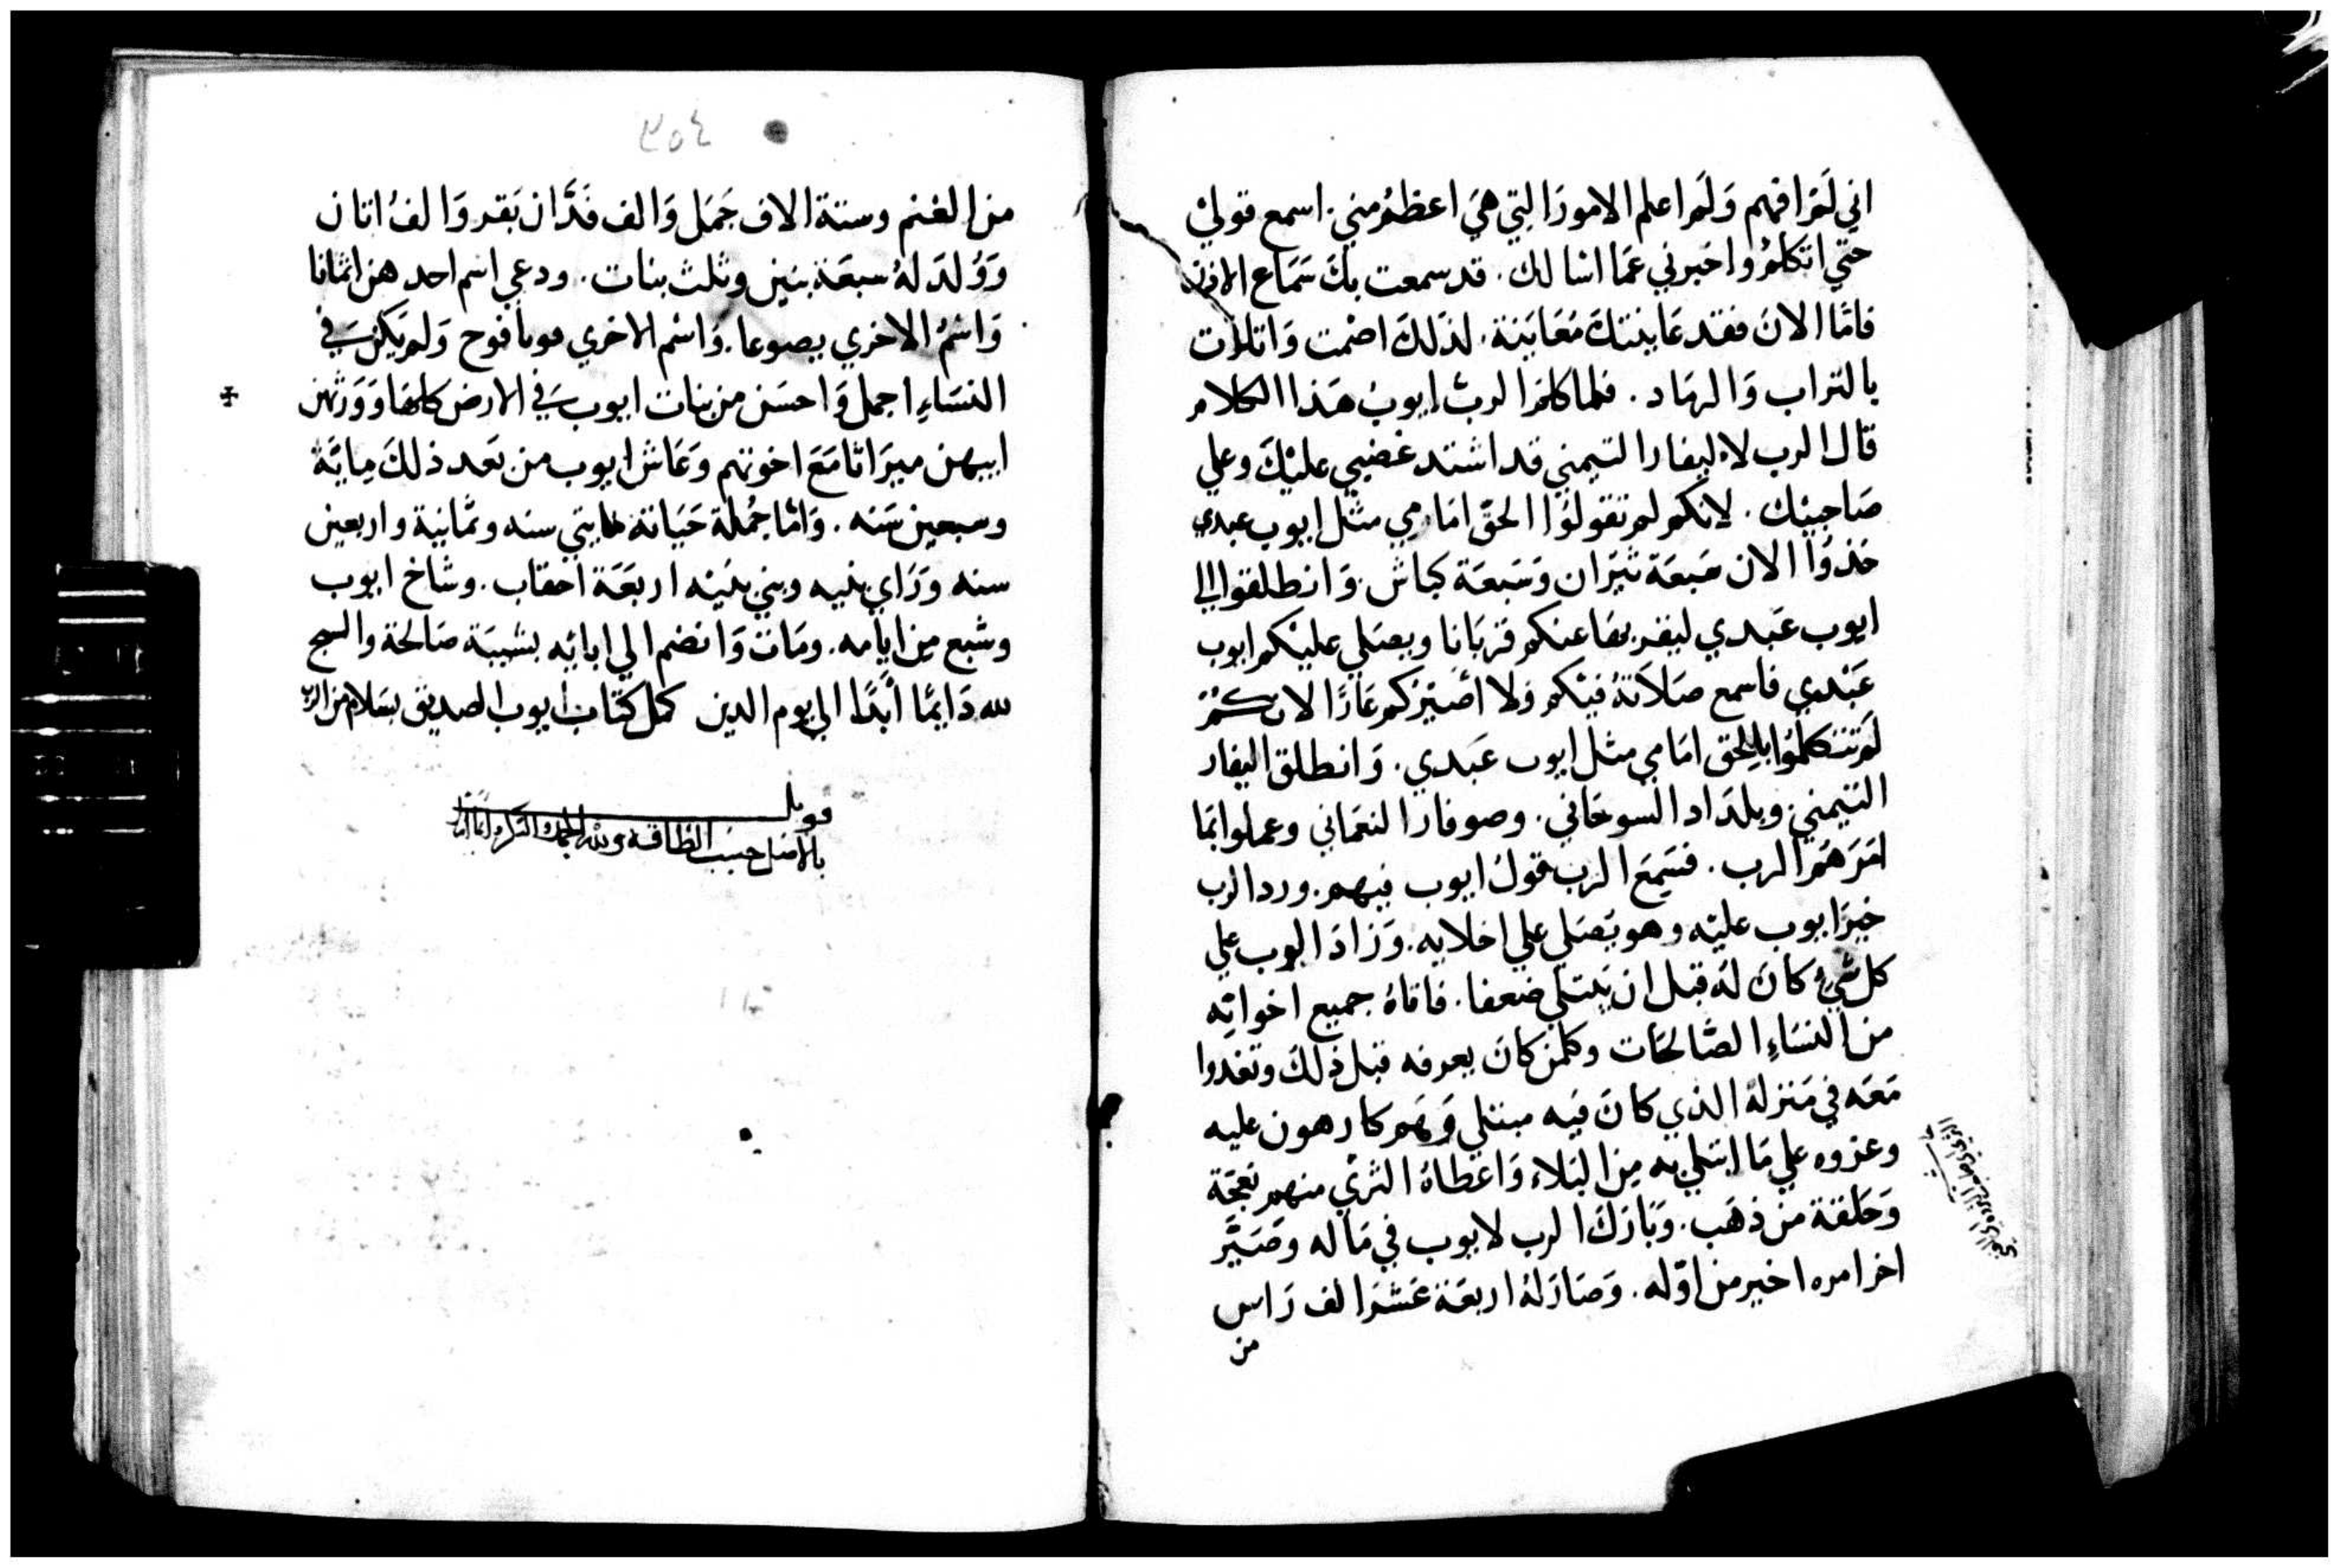 اني لَمْ افهم وَلَم اعلم الامورَ التِي هيَ اعظمُ مِني. اسمع قوليْ
حتّي اتكلمُ واخبرني عَما اسالك. قد سمعت بكَ سَمَاع الاذن
فامَّا الانَ فقد عَاينتكَ مُعَايَنة. لذلكَ اصْمت وَاتلات
بالتراب وَالرمَاد. فلما كلمَ الربُ ايوبُ هَذا الكلام
قال الرب لاليفار التيمني قد اشتد غضبي عليْكَ وعلي
صَاحبيْك. لانكم لم تقولوُا الحقّ امَامِي مثل ايوب عبدي
خذوُا الان سَبعَة ثيرَان وَسَبعَة كباش. وَانطلقوا الي
ايوب عَبدي ليقربهَا عنكم قربَانا ويصَلي عليْكم ايوب
عَبْدي فاسمع صَلاَتهُ فيْكم وَلا اصَيْركم عَارًا لانكمْ
لمَ تتكلمُوا بالحق امَامي مثل ايوب عَبدي. وَانطلق اليفار
التيمني وبلدَاد السوحَاني. وصوفار النعمَاني وعملوا بمَا
امَرَهمُ الرب. فسَمِعَ الرب قولُ ايوب فيهم. ورد الرب
خيرَ ايوب عليْه وهو يَصَلي علي اخلايه. وَزادَ الرب علي
كل شيْ كانَ لهَ قبل ان يَبتلي ضعفا. فاتاهُ جميع اخواتِه
من النسَاءِ الصَّالحَات وكلمن كانَ يعرفه قبل ذلكَ وتغدوا
مَعَه في مَنزلهَ الذي كانَ فيَه مبتلي وَهَم كارهون عليه
وعزوه علي مَا ابتلي به مِن البَلاء وَاعطاهُ الثريْ منهم نعجَة
وَحَلقة من ذهَب. وَبَارَكَ الرب لايوب في مَاله وصَيَّر
اخر امره اخير من اوّله. وَصَارَ لهُ اربعَة عَشرَ الف رَاس
من
٣٥٤
من الغنم وستة الاف جَمَل وَالف فَدَّان بَقر وَالفُ اتان
وَوُلدَ لهُ سبعَة بنين وثلث بنات. ودعي اسم احدهن اثمانا
وَاسْمُ الاخري بصوعا. وَاسْم الاخري مونافوح وَلم يَكن في
النسَاءِ اجمل وَاحسَن من بنات ايوب في الارض كلهَا وَوَرثهن
ابيهن ميرَاثا مَعَ اخوتهم وَعَاش ايوب من بَعَد ذلكَ مِايَة
وسبعين سَنه. وَامّا جُملة حَيَاتة مايتي سنه وثمَانية واربعين
سنه وَرَاي بنيه وبني بنيْه اربَعَة احقاب. وشاخ ايوب
وشبع مِن ايَامه. ومَات وَانضم الي ابائه بشيبَة صَالحة والسبح
لله دَايمًا ابَدًا الي يوم الدين كمل كتاب ايوب الصديق بسَلام من الرب
قوبل
بالاصل حسَب الطاقه ولله الحمد